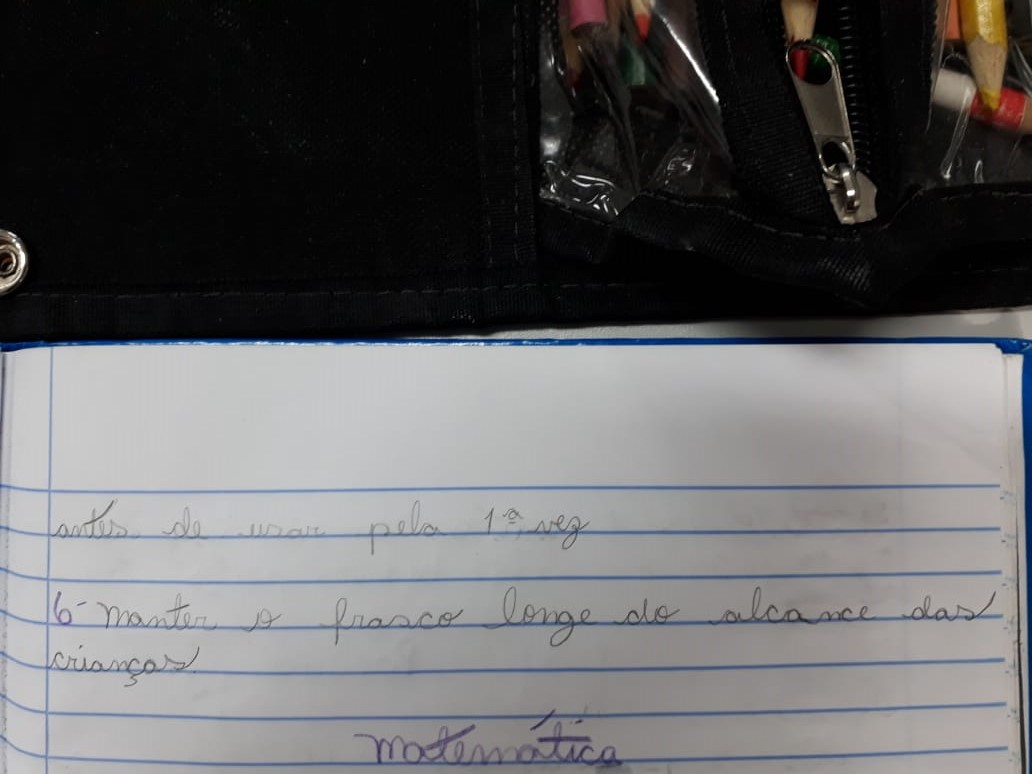 antes de usar pela 1ª vez
6- Manter o frasco longe do alcance das
crianças.
Matemática